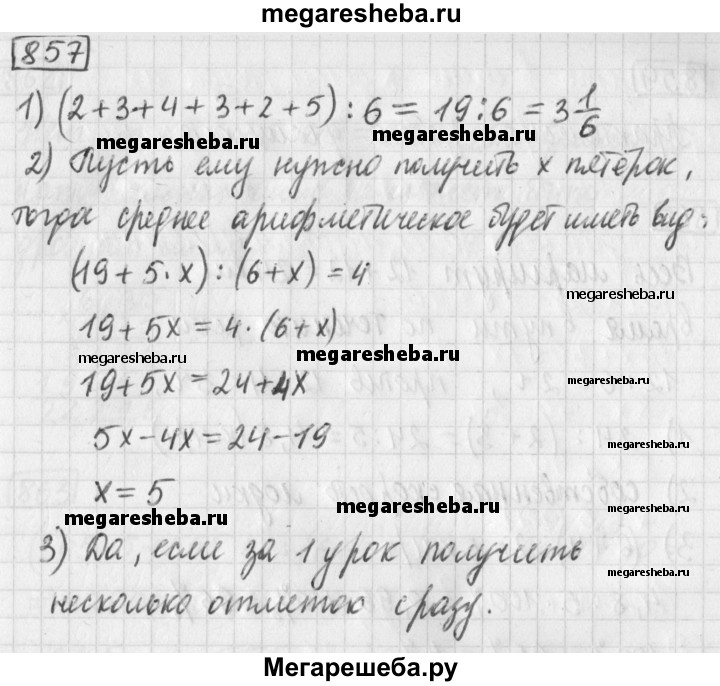 megaresheba.ru
857
1) (2+3+4+3+2+5):6=19:6=3 1/6
megaresheba.ru
megaresheba.ru
2) Пусть ему нужно получить x пятёрок,
тогда среднее арифметическое будет иметь вид:
(19+5·x):(6+x)=4
megaresheba.ru
19+5x=4·(6+x)
megaresheba.ru
megaresheba.ru
19+5x=24+4x
megaresheba.ru
5x-4x=24-19
x=5
megaresheba.ru
megaresheba.ru
3) Да, если за 1 урок получить
megaresheba.ru
несколько отметок сразу.
megaresheba.ru
Мегарешеба.ру